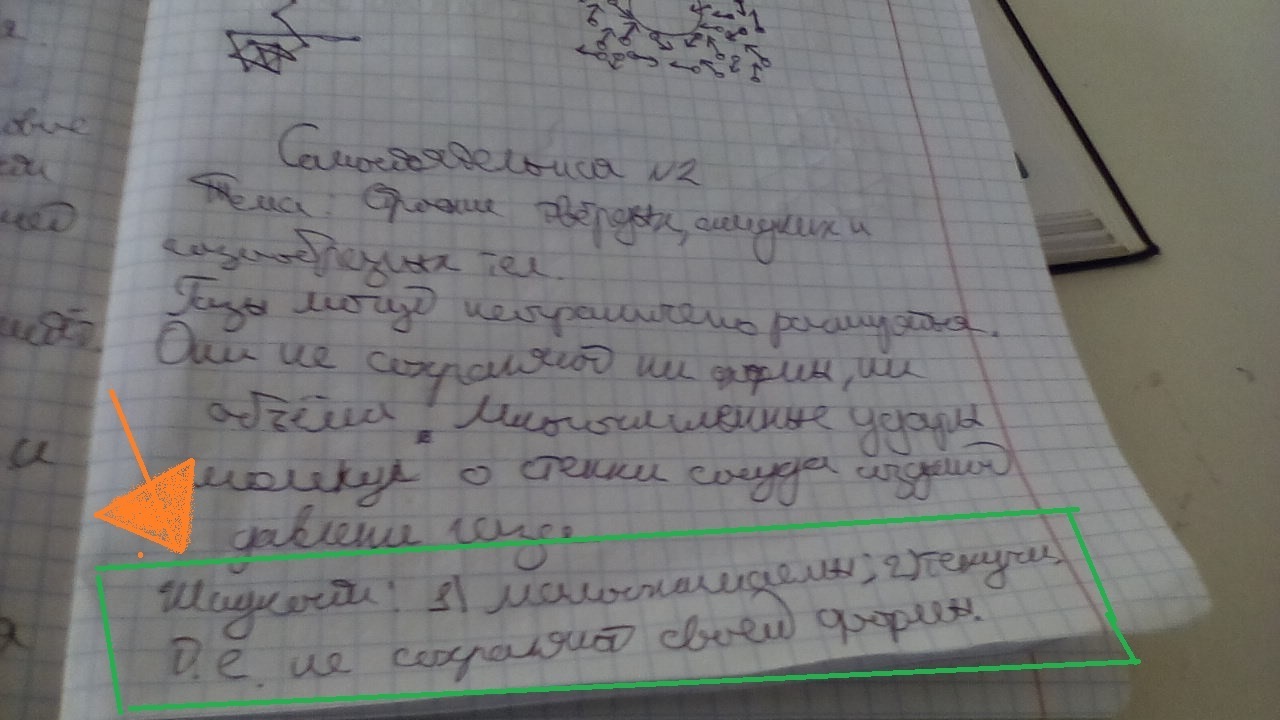 овые
ти
ией
и
Самостоятельная №2
Тема: Строение твёрдых, жидких и
газообразных тел.
Газы могут неограничено расширяться.
Они не сохраняют ни формы, ни
объёма. Многочисленные удары
молекул о стенки сосуда создают
давление газа.
Жидкости: 1) малосжимаемы; 2) текучи,
т.е. не сохраняют своей формы.